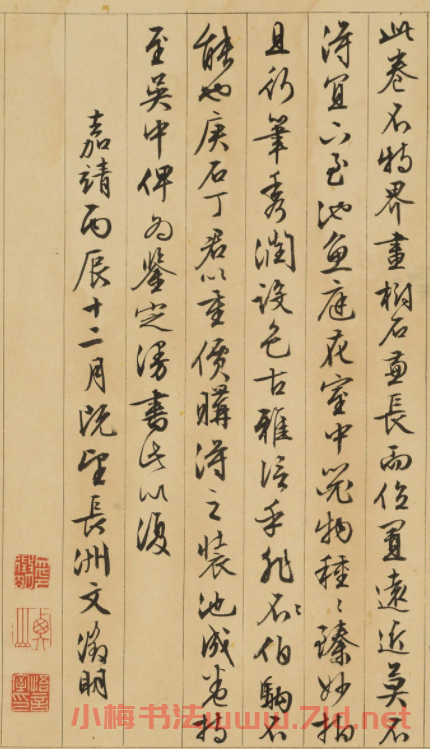 此卷不特界畫樹石兼長而位置遠近莫不
得宜下至池魚庭花室中物種〻臻妙抑
且行筆秀潤設色古雅信乎非伯駒不
能也庚石丁君以重價購得之裝池成卷持
至吳中俾為鑒定漫書此以復
嘉靖丙辰十二月既望長洲文徵明
小梅书法www.7ld.net